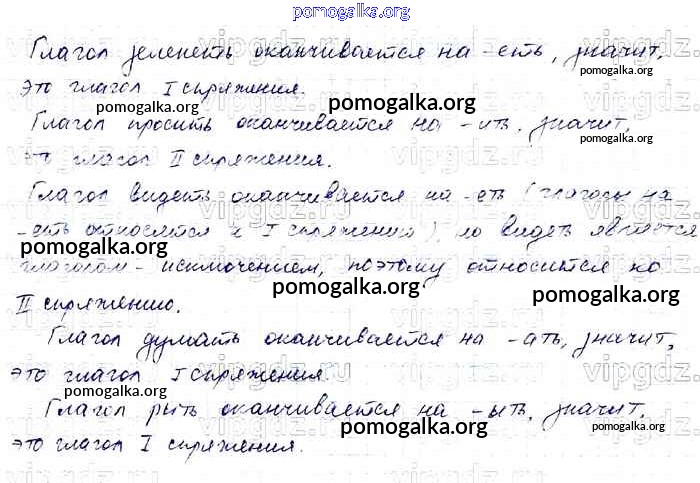 pomogalka.org
Глагол зеленеть оканчивается на -еть, значит,
pomogalka.org
это глагол I спряжения.
pomogalka.org
pomogalka.org
Глагол просить оканчивается на -ить, значит,
pomogalka.org
это глагол II спряжения.
vipgdz.ru
Глагол видеть оканчивается на -еть (глаголы на
-еть относятся к I спряжению), но видеть является
pomogalka.org
глаголом-исключением, поэтому относится ко
pomogalka.org
pomogalka.org
II спряжению.
Глагол думать оканчивается на -ать, значит,
это глагол I спряжения.
pomogalka.org
Глагол рыть оканчивается на -ыть, значит,
pomogalka.org
pomogalka.org
это глагол I спряжения.